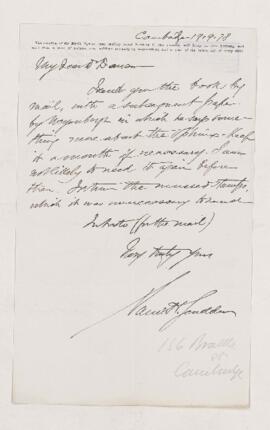 Cambridge 19.9.78
My Dear Dr Dawson
I send you the book by
mail, with a subsequent paper
by Woodward in which he says some-
thing more about the Keep
it a month if necessary. I am
not likely to need it again before
then. I return the unused stamps,
which it was unnecessary to send
(for the mail)
Very truly yours
Samuel H. Scudder
156 Brattle
St
Cambridge